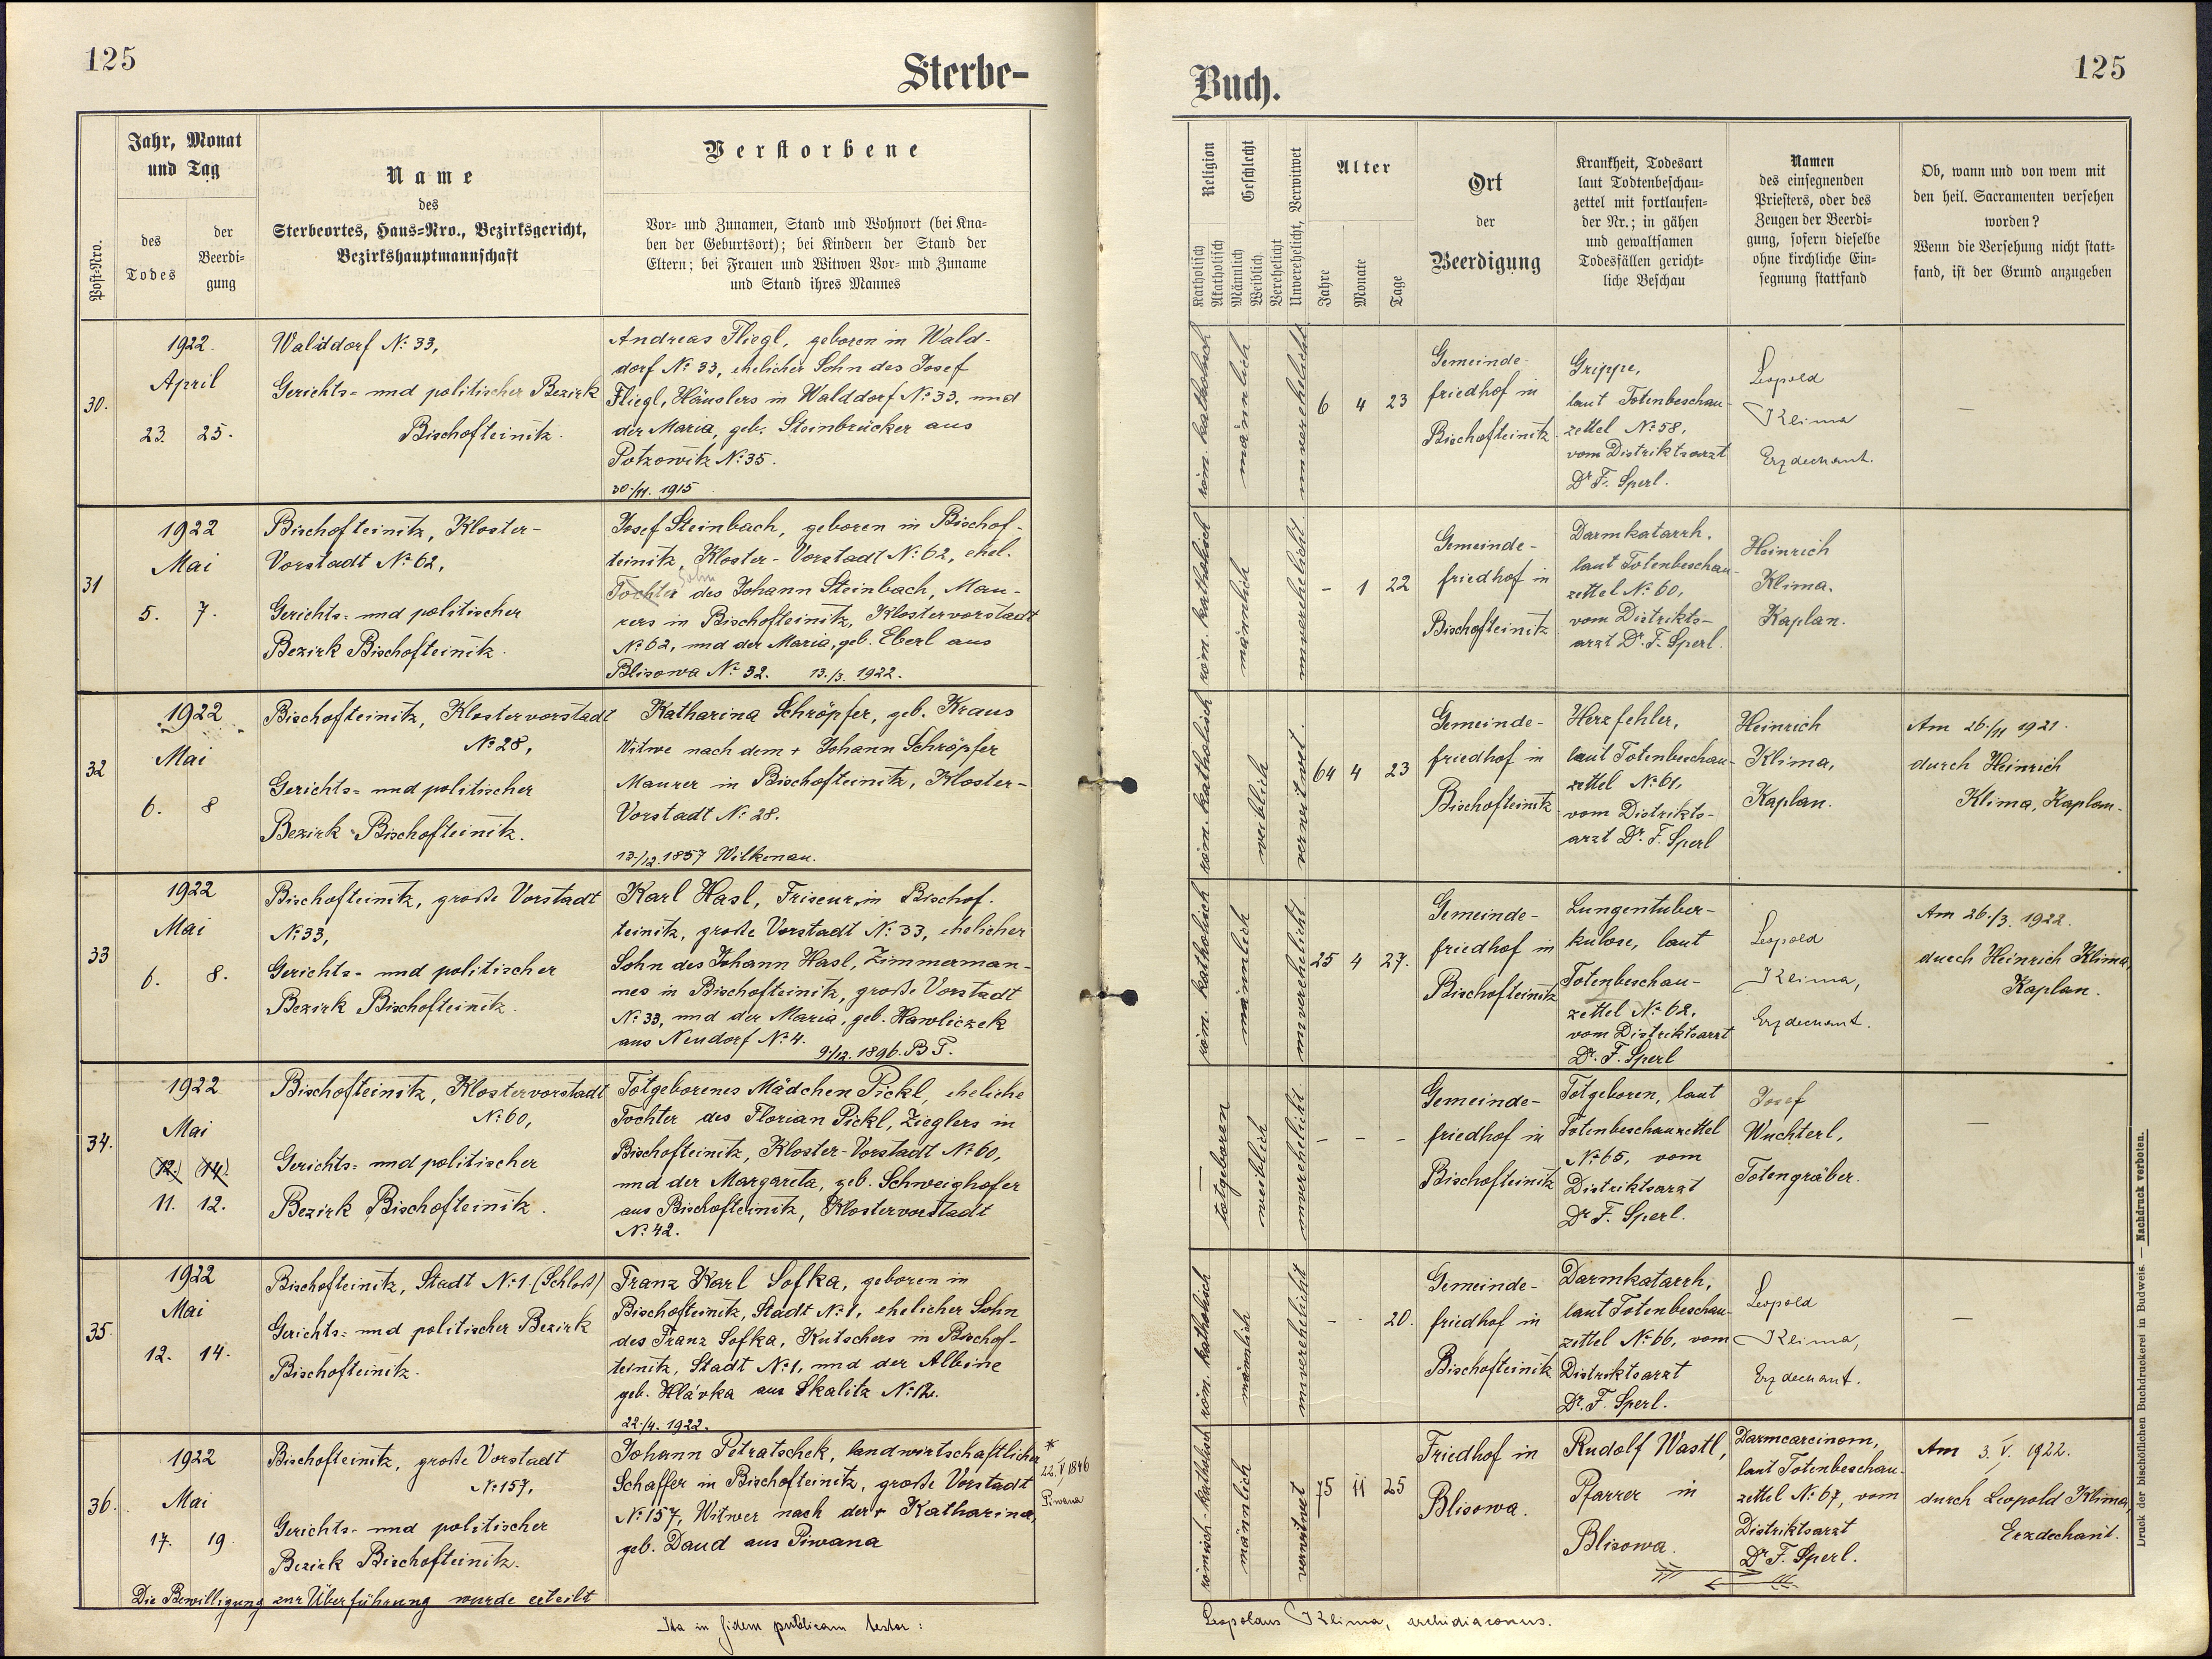 125
Sterbe-
Jahr, Monat
und Tag
Post-Nro.
des
Todes
der
Beerdi-
gung
Name
des
Sterbeortes, Haus-Nro., Bezirksgericht,
Bezirkshauptmannschaft
Verstorbene
Vor- und Zunamen, Stand und Wohnort (bei Kna-
ben der Geburtsort); bei Kindern der Stand der
Eltern; bei Frauen und Witwen Vor- und Zuname
und Stand ihres Mannes
30.
1922.
April
23. 25.
Walddorf No. 33,
Gerichts- und politischer Bezirk
Bischofteinitz.
Andreas Fliegl, geboren in Wald-
dorf No 33, ehelicher Sohn des Josef
Fliegl, Häuslers in Walddorf No 33, und
der Maria, geb. Steinbrücker aus
Potzowitz No 35.
30./11. 1915
31
1922
Mai
5. 7.
Bischofteinitz, Kloster-
Vorstadt No 62,
Gerichts- und politischer
Bezirk Bischofteinitz.
Josef Steinbach, geboren in Bischof-
teinitz, Kloster-Vorstadt No 62, ehel.
Tochter Sohn des Johann Steinbach, Mau-
rers in Bischofteinitz, Klostervorstadt
No 62, und der Maria, geb. Eberl aus
Blisowa No 32. 13./3. 1922.
32
1922
Mai
6. 8
Bischofteinitz, Klostervorstadt
No 28,
Gerichts- und politischer
Bezirk Bischofteinitz.
Katharina Schröpfer, geb. Kraus
Witwe nach dem + Johann Schröpfer
Maurer in Bischofteinitz, Kloster-
Vorstadt No 28.
13./12. 1857 Wilkenau.
33
1922
Mai
6. 8.
Bischofteinitz, große Vorstadt
No 33,
Gerichts- und politischer
Bezirk Bischofteinitz.
Karl Hasl, Friseur in Bischof-
teinitz, große Vorstadt No 33, ehelicher
Sohn des Johann Hasl, Zimmerman-
nes in Bischofteinitz, große Vorstadt
No 33, und der Maria, geb. Hawliczek
aus Neudorf No 4.
9./12. 1896. B T.
34.
1922
Mai
(12.) (14.)
11. 12.
Bischofteinitz, Klostervorstadt
No 60,
Gerichts- und politischer
Bezirk Bischofteinitz.
Totgeborenes Mädchen Pickl, eheliche
Tochter des Florian Pickl, Zieglers in
Bischofteinitz, Kloster-Vorstadt No 60,
und der Margareta, geb. Schweighofer
aus Bischofteinitz, Klostervorstadt
No 42.
35.
1922
Mai
12. 14.
Bischofteinitz, Stadt No 1. (Schloß)
Gerichts- und politischer Bezirk
Bischofteinitz.
Franz Karl Sofka, geboren in
Bischofteinitz, Stadt No 1, ehelicher Sohn
des Franz Sofka, Kutschers in Bischof-
teinitz, Stadt No 1, und der Albine
geb. Hlávka aus Skalitz
22./4. 1922.
36.
1922
Mai
17. 19.
Bischofteinitz, große Vorstadt
No 157,
Gerichts- und politischer
Bezirk Bischofteinitz.
Die Bewilligung zur Überführung wurde erteilt
Johann Petratschek, landwirtschaftlicher
Schaffer in Bischofteinitz, große Vorstadt
No 157, Witwer nach der + Katharina,
geb. Daud aus Piwana
*
22. V 1846
Piwana
Ita in fidem publicam testor:
Buch.
125
Religion
Katholisch
Akatholisch
Geschlecht
Männlich
Weiblich
Verehelicht
Unverehelicht, Verwitwet
Alter
Jahre
Monate
Tage
Ort
der
Beerdigung
Krankheit, Todesart
laut Todtenbeschau-
zettel mit fortlaufen-
der Nr.; in gähen
und gewaltsamen
Todesfällen gericht-
liche Beschau
Namen
des einsegnenden
Priesters, oder des
Zeugen der Beerdi-
gung, sofern dieselbe
ohne kirchliche Ein-
segnung stattfand
Ob, wann und von wem mit
den heil. Sacramenten versehen
worden?
Wenn die Versehung nicht statt-
fand, ist der Grund anzugeben
röm. katholisch
männlich
unverehelicht
6 4 23
Gemeinde-
friedhof in
Bischofteinitz.
Grippe,
laut Totenbeschau-
zettel No 58,
vom Distriktsarzt
Dr F. Sperl.
Leopold
Klima
Erzdechant.
—
röm. katholisch
männlich
unverehelicht
- 1 22
Gemeinde-
friedhof in
Bischofteinitz
Darmkatarrh,
laut Totenbeschau-
zettel No 60,
vom Distrikts-
arzt Dr. F. Sperl.
Heinrich
Klima.
Kaplan.
röm. katholisch
weiblich
verwitwet.
64 4 23
Gemeinde-
friedhof in
Bischofteinitz
Herzfehler,
laut Totenbeschau-
zettel No 61,
vom Distrikts-
arzt Dr. F. Sperl
Heinrich
Klima,
Kaplan.
Am 26./11 1921.
durch Heinrich
Klima, Kaplan.
röm. katholisch
männlich
unverehelicht
25 4 27.
Gemeinde-
friedhof in
Bischofteinitz
Lungentuber-
kulose, laut
Totenbeschau-
zettel No 62,
vom Distriktsarzt
Dr. F. Sperl
Leopold
Klima,
Erzdechant.
Am 26./3. 1922.
durch Heinrich Klima,
Kaplan.
totgeboren
weiblich
unverehelicht
- - -
Gemeinde-
friedhof in
Bischofteinitz
Totgeboren, laut
Totenbeschauzettel
No 65, vom
Distriktsarzt
Dr F. Sperl.
Josef
Wuchterl,
Totengräber.
—
röm. katholisch
männlich
unverehelicht
- - 20.
Gemeinde-
friedhof in
Bischofteinitz
Darmkatarrh,
laut Totenbeschau-
zettel No 66, vom
Distriktsarzt
Dr. F. Sperl.
Leopold
Klima,
Erzdechant.
—
römisch-katholisch
männlich
verwitwet
75 11 25
Friedhof in
Blisowa.
Rudolf Wastl,
Pfarrer in
Blisowa.
Darmcarcinom,
laut Totenbeschau-
zettel No 67, vom
Distriktsarzt
Dr F. Sperl.
Am 3. V. 1922.
durch Leopold Klima,
Erzdechant.
Leopoldus Klima, archidiaconus.
Druck der bischöflichen Buchdruckerei in Budweis. — Nachdruck verboten.